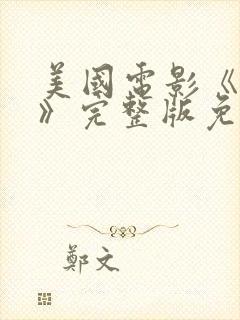 美國電影《
》完整版免
鄭文